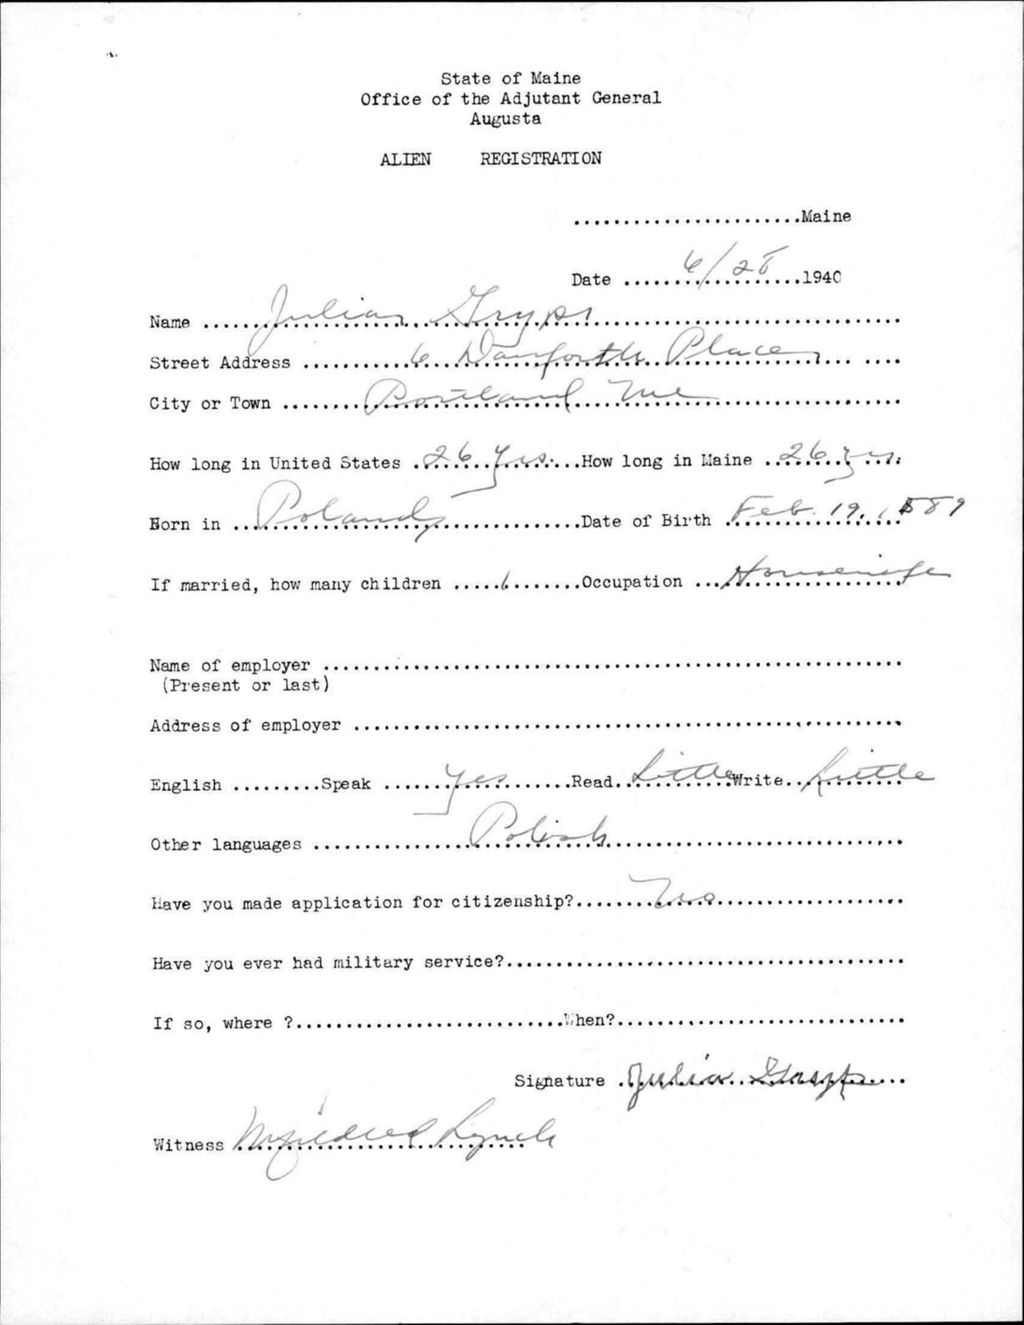 State of Maine
Office of the Adjutant General
Augusta
ALIEN REGISTRATION
.......................Maine
Date ......6/28......1940
Name ......Julian Gryps......
Street Address ......6 Danforth Place......
City or Town ......Portland Me......
How long in United States ...26 yrs....How long in Maine ...26 yrs...
Born in ...Poland......Date of Birth ...Feb. 19, 1889
If married, how many children ......6......Occupation ...Housewife
Name of employer ......
(Present or last)
Address of employer ......
English .........Speak ......Yes......Read...Little Write...Little
Other languages ......Polish......
Have you made application for citizenship?......No......
Have you ever had military service?......
If so, where ?......When?......
Signature ...Julia Gryps...
Witness Mildred Lynch